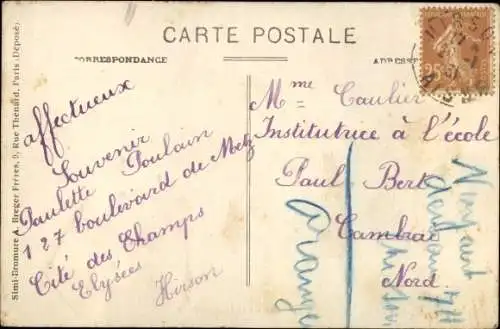 CARTE POSTALE
CORRESPONDANCE
ADRESSE
affectueux
Souvenir
Paulette Poulain
127 boulevard de Metz
Cité des Champs
Elysées
Hirson
Mme Caulier
Institutrice à l'école
Paul Bert
Cambrai
Nord.
Orange
25
Simi-Bromure A. Breger Frères, 9, Rue Thénard, Paris (Déposé)